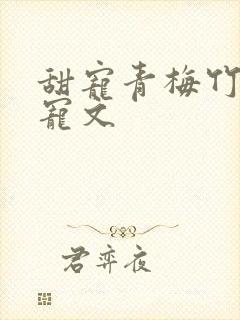 甜寵青梅竹
寵文
君弈夜